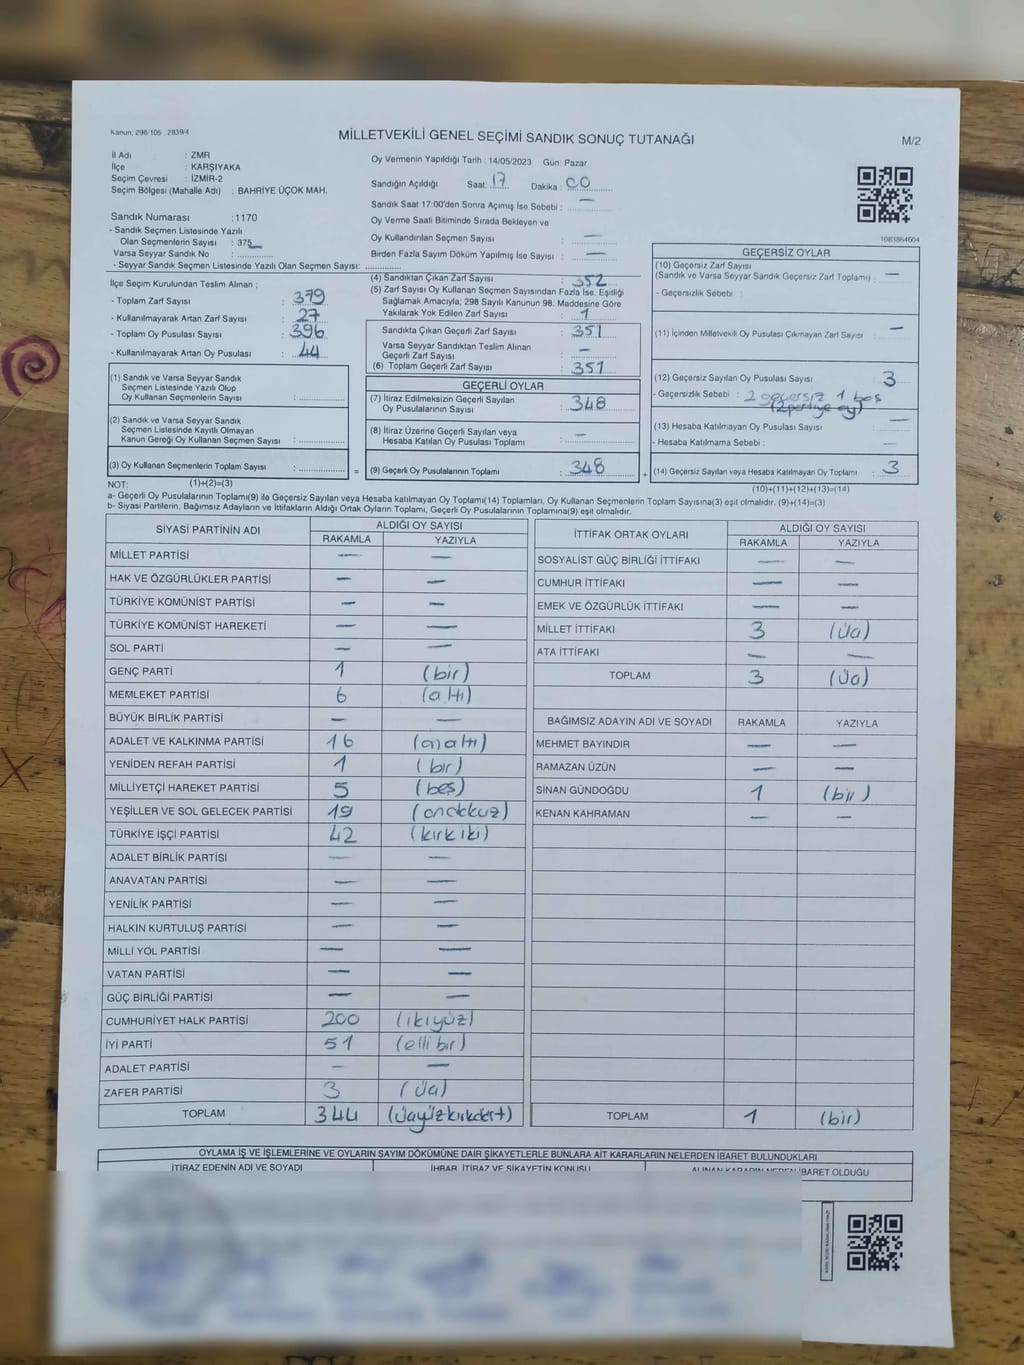 Kanun, 298/105 , 2839/4
MİLLETVEKİLİ GENEL SEÇİMİ SANDIK SONUÇ TUTANAĞI
M/2
İl Adı : ZMR
İlçe : KARŞIYAKA
Seçim Çevresi : İZMİR-2
Seçim Bölgesi (Mahalle Adı) : BAHRİYE ÜÇOK MAH.
Sandık Numarası :1170
- Sandık Seçmen Listesinde Yazılı
Olan Seçmenlerin Sayısı : 375
Varsa Seyyar Sandık No :
- Seyyar Sandık Seçmen Listesinde Yazılı Olan Seçmen Sayısı:
İlçe Seçim Kurulundan Teslim Alınan ;
- Toplam Zarf Sayısı : 379
- Kullanılmayarak Artan Zarf Sayısı : 27
- Toplam Oy Pusulası Sayısı : 396
- Kullanılmayarak Artan Oy Pusulası : 44
(1) Sandık ve Varsa Seyyar Sandık
Seçmen Listesinde Yazılı Olup
Oy Kullanan Seçmenlerin Sayısı :
(2) Sandık ve Varsa Seyyar Sandık
Seçmen Listesinde Kayıtlı Olmayan
Kanun Gereği Oy Kullanan Seçmen Sayısı :
(3) Oy Kullanan Seçmenlerin Toplam Sayısı : =
Oy Vermenin Yapıldığı Tarih : 14/05/2023 Gün: Pazar
Sandığın Açıldığı Saat: 17 Dakika : 00
Sandık Saat 17:00'den Sonra Açımış İse Sebebi : —
Oy Verme Saati Bitiminde Sırada Bekleyen ve
Oy Kullandırılan Seçmen Sayısı : —
Birden Fazla Sayım Döküm Yapılmış İse Sayısı : —
(4) Sandıktan Çıkan Zarf Sayısı : 352
(5) Zarf Sayısı Oy Kullanan Seçmen Sayısından Fazla İse, Eşitliği
Sağlamak Amacıyla; 298 Sayılı Kanunun 98. Maddesine Göre
Yakılarak Yok Edilen Zarf Sayısı : 1
Sandıkta Çıkan Geçerli Zarf Sayısı : 351
Varsa Seyyar Sandıktan Teslim Alınan
Geçerli Zarf Sayısı : —
(6) Toplam Geçerli Zarf Sayısı : 351
GEÇERLİ OYLAR
(7) İtiraz Edilmeksizin Geçerli Sayılan
Oy Pusulalarının Sayısı : 348
(8) İtiraz Üzerine Geçerli Sayılan veya
Hesaba Katılan Oy Pusulası Toplamı : —
(9) Geçerli Oy Pusulalarının Toplamı : 348 +
1083864604
GEÇERSİZ OYLAR
(10) Geçersiz Zarf Sayısı
(Sandık ve Varsa Seyyar Sandık Geçersiz Zarf Toplamı) : —
- Geçersizlik Sebebi :
(11) İçinden Milletvekili Oy Pusulası Çıkmayan Zarf Sayısı : —
(12) Geçersiz Sayılan Oy Pusulası Sayısı : 3
- Geçersizlik Sebebi : 2 geçersiz 1 boş
(2 partiye oy)
(13) Hesaba Katılmayan Oy Pusulası Sayısı : —
- Hesaba Katılmama Sebebi : —
(14) Geçersiz Sayılan veya Hesaba Katılmayan Oy Toplamı : 3
NOT: (1)+(2)=(3) (10)+(11)+(12)+(13)=(14)
a- Geçerli Oy Pusulalarının Toplamı(9) ile Geçersiz Sayılan veya Hesaba katılmayan Oy Toplamı(14) Toplamları, Oy Kullanan Seçmenlerin Toplam Sayısına(3) eşit olmalıdır. (9)+(14)=(3)
b- Siyasi Partilerin, Bağımsız Adayların ve İttifakların Aldığı Ortak Oyların Toplamı, Geçerli Oy Pusulalarının Toplamına(9) eşit olmalıdır.
SİYASİ PARTİNİN ADI ALDIĞI OY SAYISI
RAKAMLA YAZIYLA
MİLLET PARTİSİ — —
HAK VE ÖZGÜRLÜKLER PARTİSİ — —
TÜRKİYE KOMÜNİST PARTİSİ — —
TÜRKİYE KOMÜNİST HAREKETİ — —
SOL PARTİ — —
GENÇ PARTİ 1 (bir)
MEMLEKET PARTİSİ 6 (altı)
BÜYÜK BİRLİK PARTİSİ — —
ADALET VE KALKINMA PARTİSİ 16 (onaltı)
YENİDEN REFAH PARTİSİ 1 (bir)
MİLLİYETÇİ HAREKET PARTİSİ 5 (beş)
YEŞİLLER VE SOL GELECEK PARTİSİ 19 (ondokuz)
TÜRKİYE İŞÇİ PARTİSİ 42 (kırkiki)
ADALET BİRLİK PARTİSİ — —
ANAVATAN PARTİSİ — —
YENİLİK PARTİSİ — —
HALKIN KURTULUŞ PARTİSİ — —
MİLLİ YOL PARTİSİ — —
VATAN PARTİSİ — —
GÜÇ BİRLİĞİ PARTİSİ — —
CUMHURİYET HALK PARTİSİ 200 (ikiyüz)
İYİ PARTİ 51 (ellibir)
ADALET PARTİSİ — —
ZAFER PARTİSİ 3 (üç)
TOPLAM 344 (üçyüzkırkdört)
İTTİFAK ORTAK OYLARI ALDIĞI OY SAYISI
RAKAMLA YAZIYLA
SOSYALİST GÜÇ BİRLİĞİ İTTİFAKI — —
CUMHUR İTTİFAKI — —
EMEK VE ÖZGÜRLÜK İTTİFAKI — —
MİLLET İTTİFAKI 3 (üç)
ATA İTTİFAKI — —
TOPLAM 3 (üç)
BAĞIMSIZ ADAYIN ADI VE SOYADI RAKAMLA YAZIYLA
MEHMET BAYINDIR — —
RAMAZAN ÜZÜN — —
SİNAN GÜNDOĞDU 1 (bir)
KENAN KAHRAMAN — —
TOPLAM 1 (bir)
OYLAMA İŞ VE İŞLEMLERİNE VE OYLARIN SAYIM DÖKÜMÜNE DAİR ŞİKAYETLERLE BUNLARA AİT KARARLARIN NELERDEN İBARET BULUNDUKLARI
İTİRAZ EDENİN ADI VE SOYADI İHBAR, İTİRAZ VE ŞİKAYETİN KONUSU ALINAN KARARIN NEDEN İBARET OLDUĞU